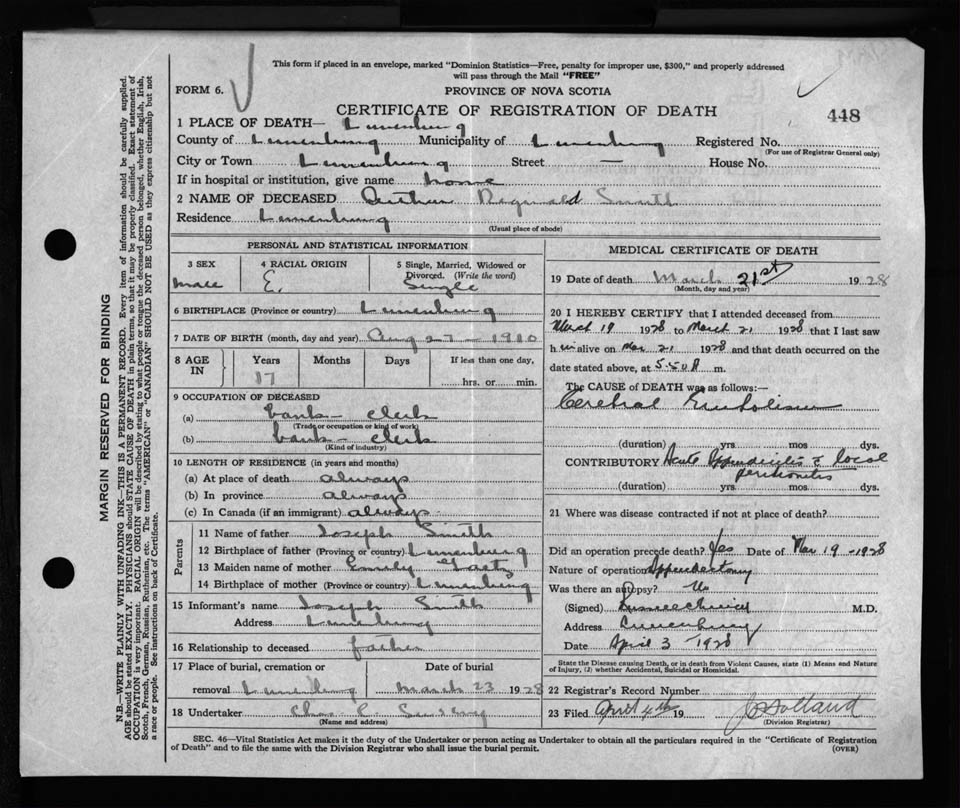 This form if placed in an envelope, marked "Dominion Statistics—Free, penalty for improper use, $300," and properly addressed
will pass through the Mail "FREE"
FORM 6.
PROVINCE OF NOVA SCOTIA
CERTIFICATE OF REGISTRATION OF DEATH
448
1 PLACE OF DEATH— Lunenburg
County of Lunenburg Municipality of Lunenburg Registered No.
(For use of Registrar General only)
City or Town Lunenburg Street — House No.
If in hospital or institution, give name home
2 NAME OF DECEASED Arthur Reginald Smith
Residence Lunenburg
(Usual place of abode)
MARGIN RESERVED FOR BINDING
N.B.—WRITE PLAINLY WITH UNFADING INK—THIS IS A PERMANENT RECORD. Every item of information should be carefully supplied.
AGE should be stated EXACTLY. PHYSICIANS should STATE CAUSE OF DEATH in plain terms, so that it may be properly classified. Exact statement of
OCCUPATION is very important. RACIAL ORIGIN will be described by stating to what people or tongue the deceased person belonged, whether English, Irish,
Scotch, French, German, Russian, Ruthenian, etc. The terms "AMERICAN" or "CANADIAN" SHOULD NOT BE USED as they express citizenship but not
a race or people. See instructions on back of Certificate.
PERSONAL AND STATISTICAL INFORMATION
3 SEX
male
4 RACIAL ORIGIN
E.
5 Single, Married, Widowed or
Divorced. (Write the word)
Single
6 BIRTHPLACE (Province or country) Lunenburg
7 DATE OF BIRTH (month, day and year) Aug 27 — 1910
8 AGE IN
Years
17
Months
Days
If less than one day,
hrs. or min.
9 OCCUPATION OF DECEASED
(a) bank - clerk
(Trade or occupation or kind of work)
(b) bank - clerk
(Kind of industry)
10 LENGTH OF RESIDENCE (in years and months)
(a) At place of death always
(b) In province always
(c) In Canada (if an immigrant) always
Parents
11 Name of father Joseph Smith
12 Birthplace of father (Province or country) Lunenburg
13 Maiden name of mother Emily
14 Birthplace of mother (Province or country) Lunenburg
15 Informant's name Joseph Smith
Address Lunenburg
16 Relationship to deceased father
17 Place of burial, cremation or
removal Lunenburg
Date of burial
March 23 1928
18 Undertaker Chas.
(Name and address)
MEDICAL CERTIFICATE OF DEATH
19 Date of death March 21st 1928
(Month, day and year)
20 I HEREBY CERTIFY that I attended deceased from
March 19 1928 to March 21 1928 that I last saw
him alive on Mar 21 1928 and that death occurred on the
date stated above, at m.
The CAUSE of DEATH was as follows:—
Cerebral Embolism
(duration) yrs. mos. dys.
CONTRIBUTORY Acute Appendicitis & local
peritonitis
(duration) yrs. mos. dys.
21 Where was disease contracted if not at place of death?
Did an operation precede death? Yes Date of Mar 19 - 1928
Nature of operation Appendectomy
Was there an autopsy? No
(Signed) M.D.
Address Lunenburg
Date April 3 1928
State the Disease causing Death, or in death from Violent Causes, state (1) Means and Nature
of Injury, (2) whether Accidental, Suicidal or Homicidal.
22 Registrar's Record Number
23 Filed April 4th 19 Holland
(Division Registrar)
SEC. 46—Vital Statistics Act makes it the duty of the Undertaker or person acting as Undertaker to obtain all the particulars required in the "Certificate of Registration
of Death" and to file the same with the Division Registrar who shall issue the burial permit.
(OVER)